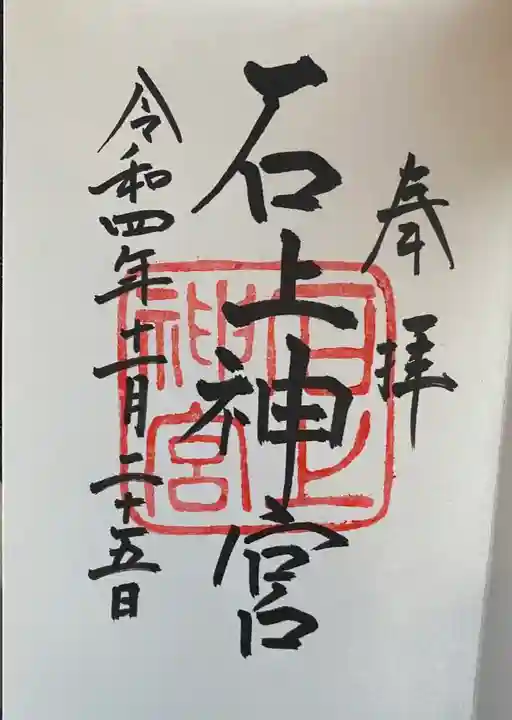 奉拝
石上神宮
令和四年十一月二十五日
石上神宮